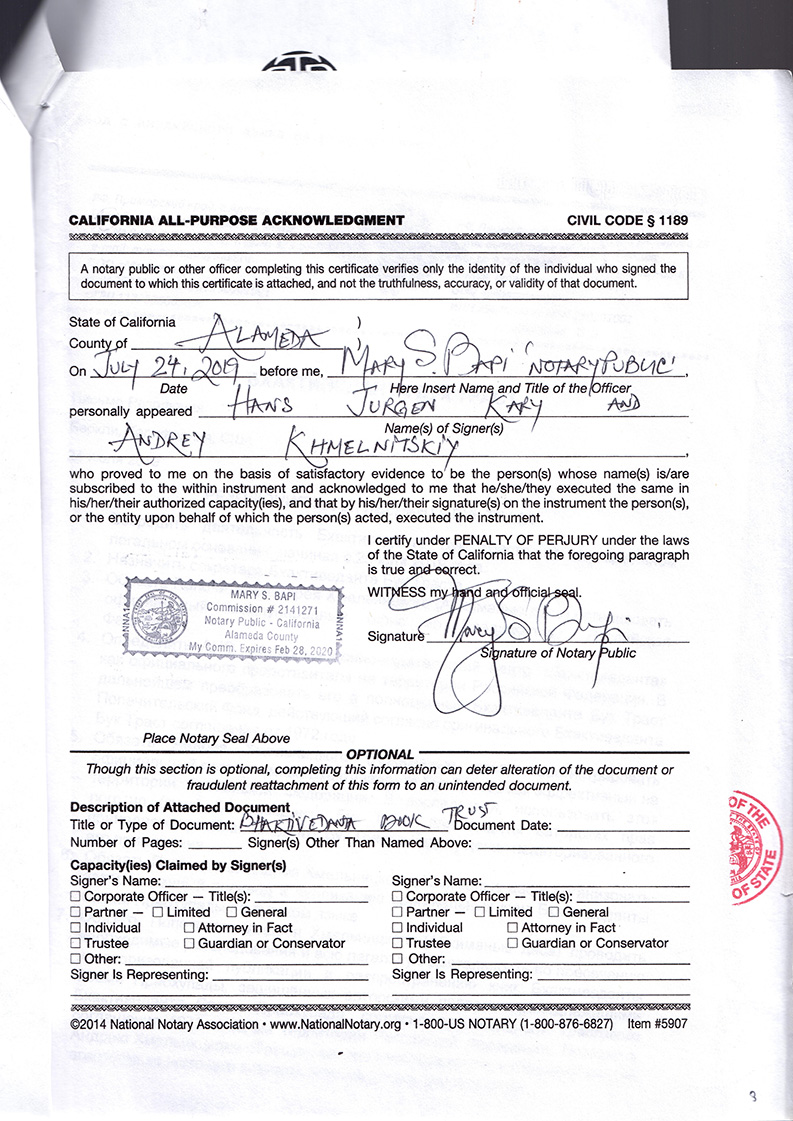 CALIFORNIA ALL-PURPOSE ACKNOWLEDGMENT CIVIL CODE § 1189
A notary public or other officer completing this certificate verifies only the identity of the individual who signed the
document to which this certificate is attached, and not the truthfulness, accuracy, or validity of that document.
State of California )
County of ALAMEDA )
On JULY 24, 2019 before me, MARY S. BAPI 'NOTARY PUBLIC',
Date Here Insert Name and Title of the Officer
personally appeared HANS JURGEN KARY AND
Name(s) of Signer(s)
ANDREY KHMELNITSKIY,
who proved to me on the basis of satisfactory evidence to be the person(s) whose name(s) is/are
subscribed to the within instrument and acknowledged to me that he/she/they executed the same in
his/her/their authorized capacity(ies), and that by his/her/their signature(s) on the instrument the person(s),
or the entity upon behalf of which the person(s) acted, executed the instrument.
I certify under PENALTY OF PERJURY under the laws
of the State of California that the foregoing paragraph
is true and correct.
WITNESS my hand and official seal.
MARY S. BAPI
Commission # 2141271
Notary Public - California
Alameda County
My Comm. Expires Feb 28, 2020
Signature Mary S Bapi
Signature of Notary Public
Place Notary Seal Above
OPTIONAL
Though this section is optional, completing this information can deter alteration of the document or
fraudulent reattachment of this form to an unintended document.
Description of Attached Document
Title or Type of Document: BHAKTIVEDANTA BOOK TRUST Document Date:
Number of Pages: Signer(s) Other Than Named Above:
OF THE
OF STATE
Capacity(ies) Claimed by Signer(s)
Signer's Name: Signer's Name:
☐ Corporate Officer — Title(s): ☐ Corporate Officer — Title(s):
☐ Partner — ☐ Limited ☐ General ☐ Partner — ☐ Limited ☐ General
☐ Individual ☐ Attorney in Fact ☐ Individual ☐ Attorney in Fact
☐ Trustee ☐ Guardian or Conservator ☐ Trustee ☐ Guardian or Conservator
☐ Other: ☐ Other:
Signer Is Representing: Signer Is Representing:
©2014 National Notary Association • www.NationalNotary.org • 1-800-US NOTARY (1-800-876-6827) Item #5907
3